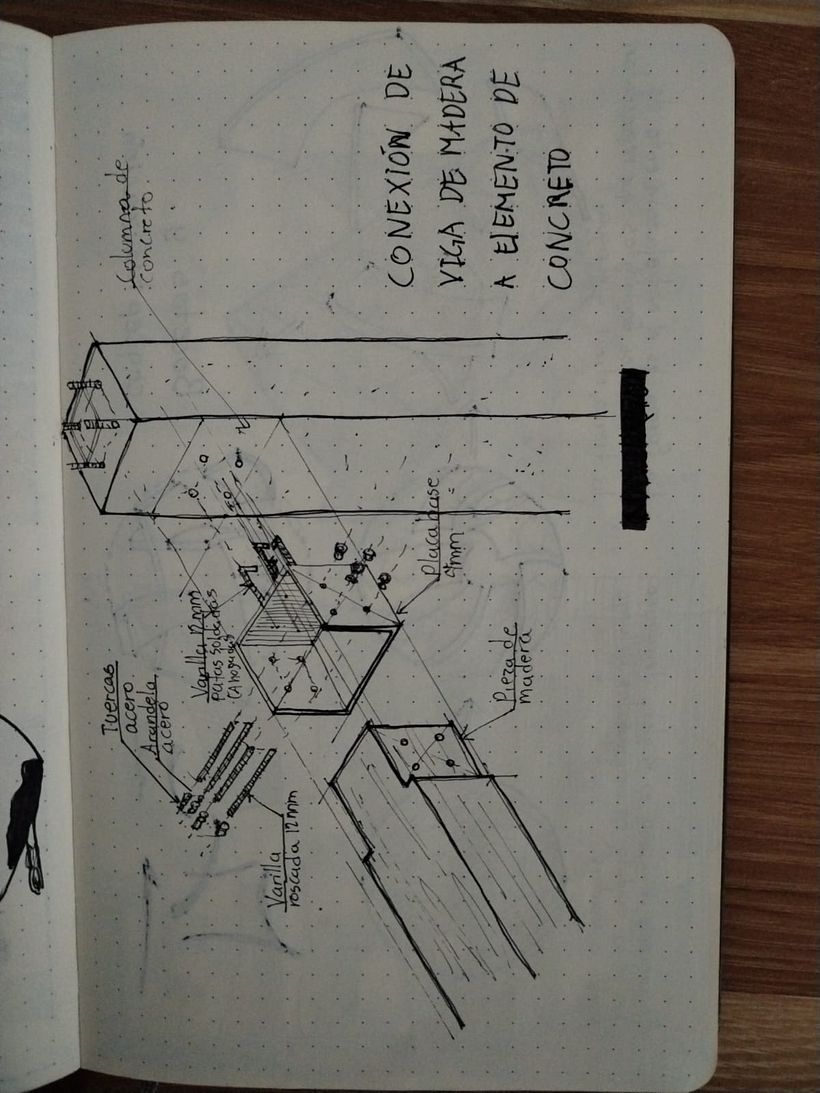 CONEXIÓN DE
VIGA DE MADERA
A ElEMENTO DE
CONCRETO
Columna de
concreto
Placa base
9mm
Pieza de
madera
Varilla 12mm
patas soldadas
(Ahogadas)
Tuercas
acero
Arandela
acero
Varilla
roscada 12mm